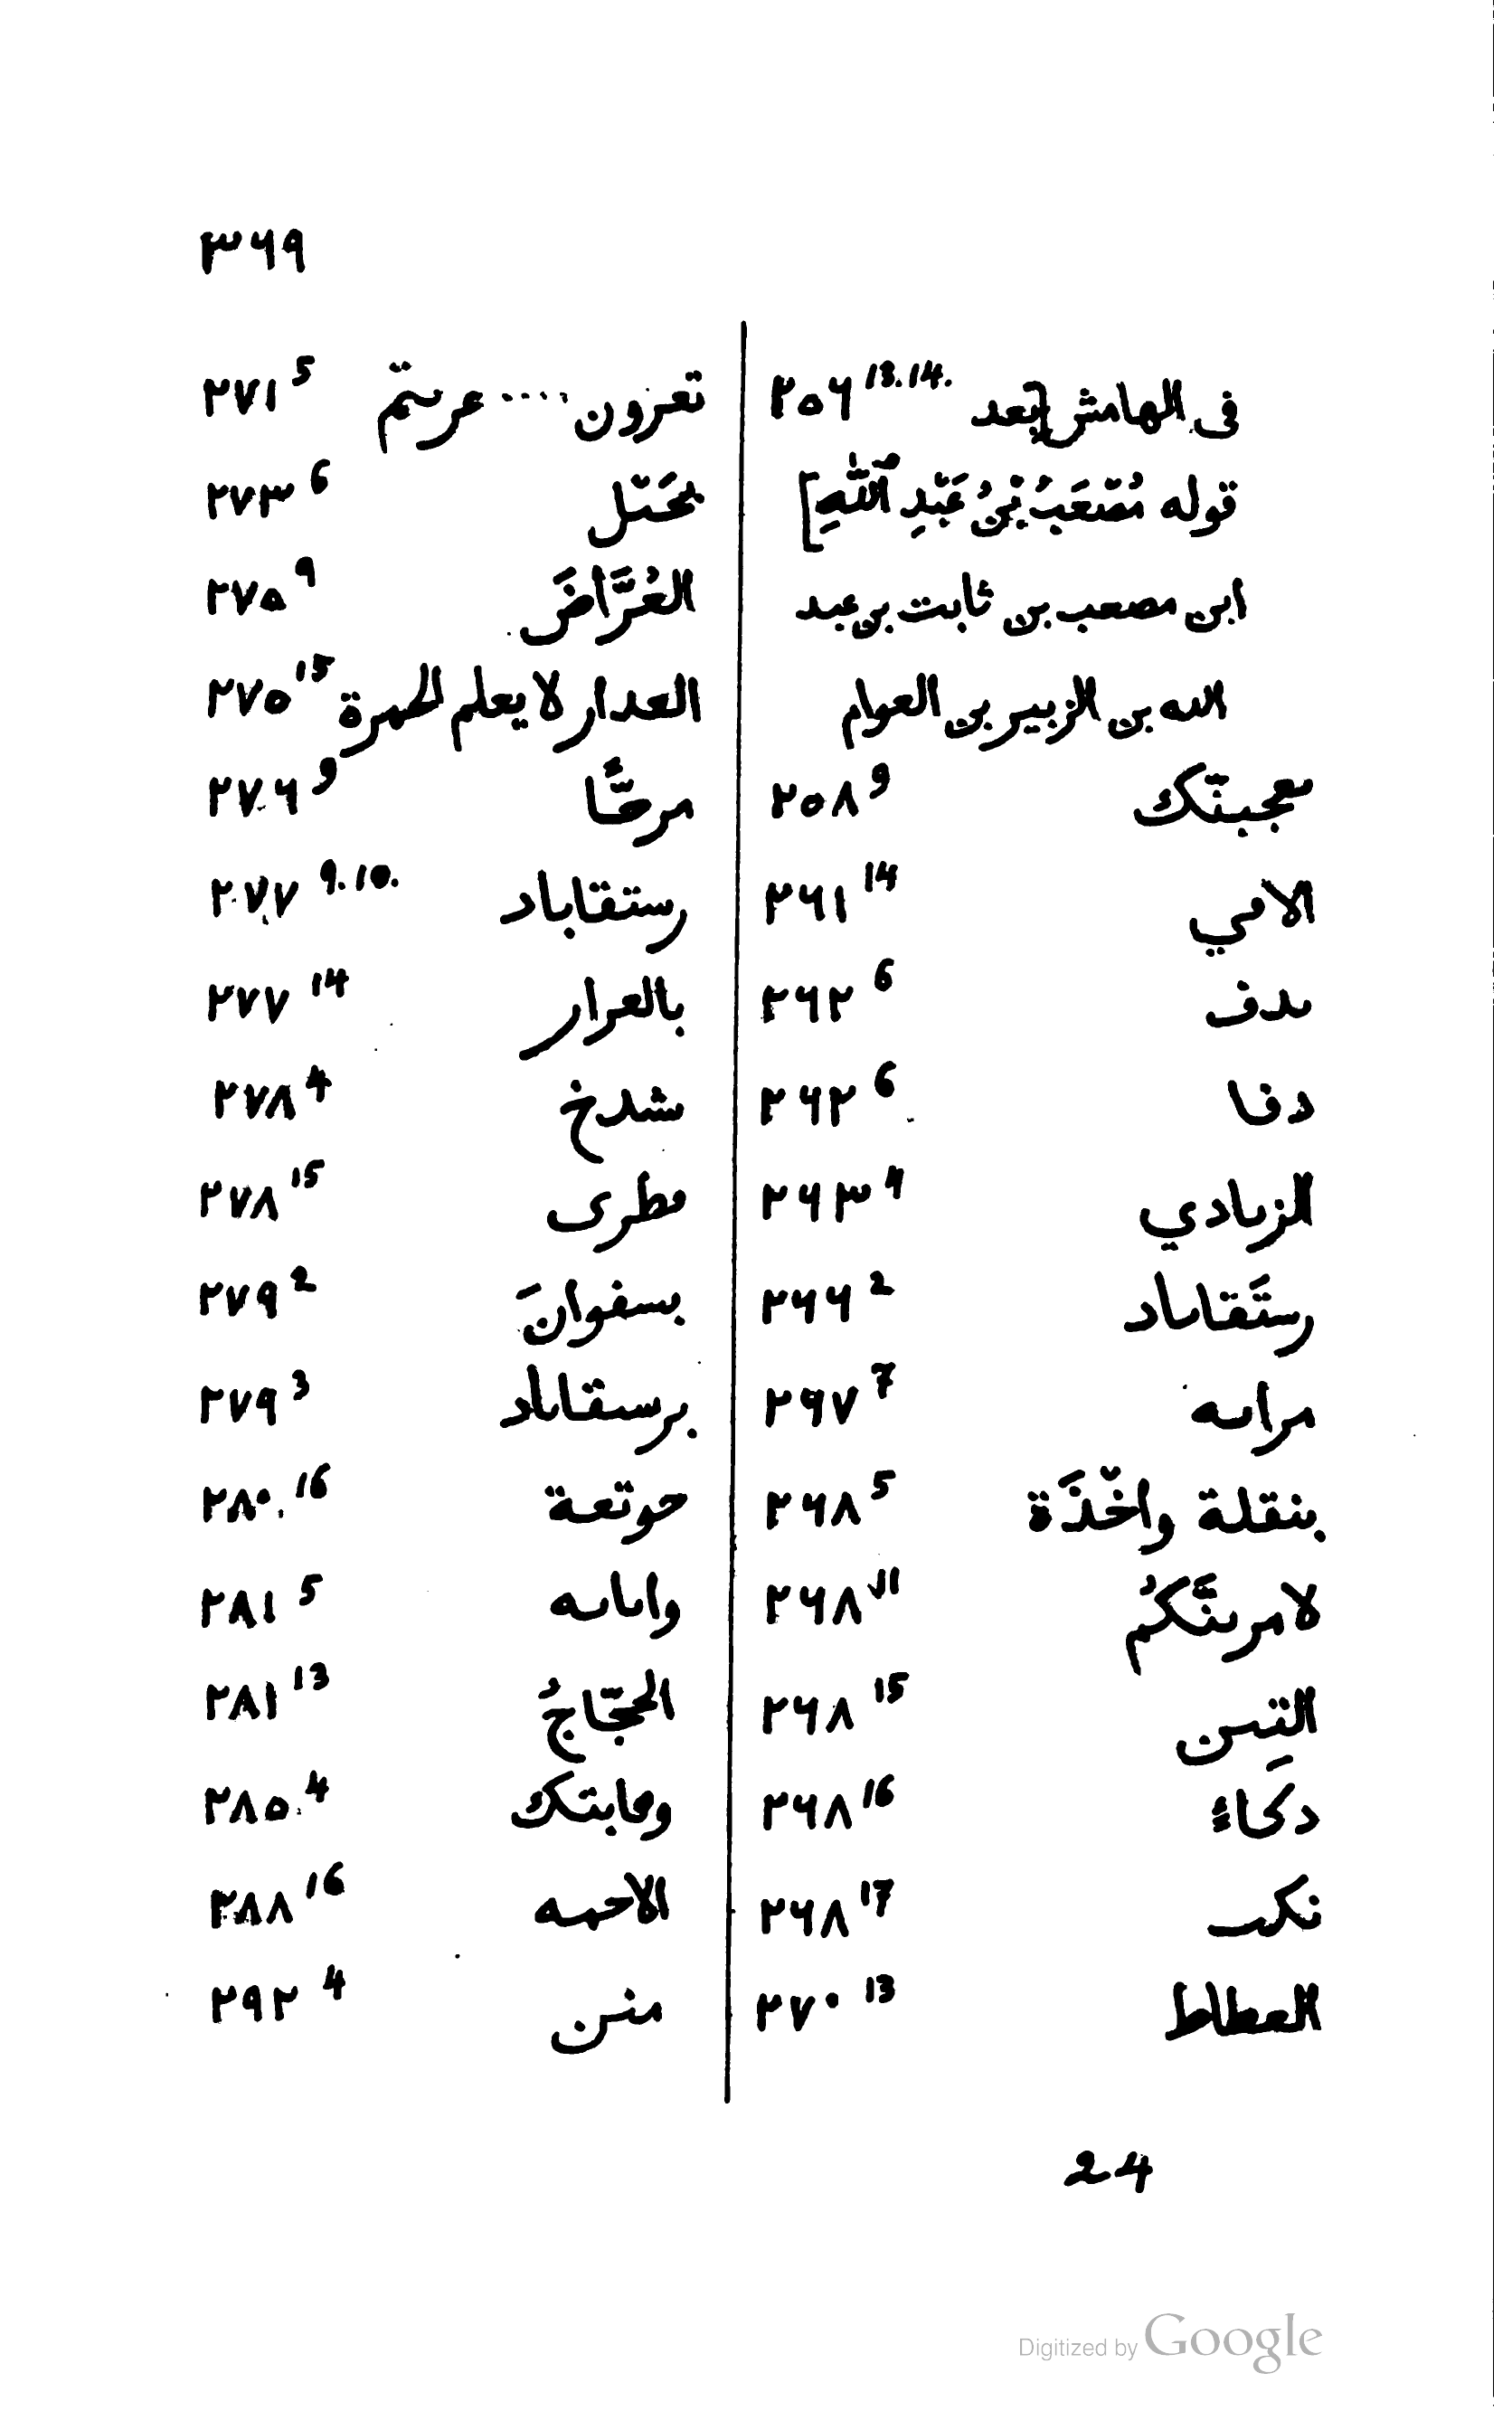 ٣٦٩
فى الهامش [بعد ٢٥٦ 13.14.
قوله مُصْعَبُ بْنُ عَبْدِ ٱللّٰهِ]
ابن مصعب بن ثابت بن عبد
الله بن الزبير بن العوام
معجبتك ٢٥٨ 9
الامي ٢٦١ 14
ٮدف ٢٦٢ 6
دفا ٢٦٢ 6
الزٮادي ٢٦٣
رستَقاٮاد ٢٦٦ 2
مراٮه ٢٦٧ 7
بنقلة واخّذَة ٢٦٨ 5
٢٦٨ 11
٢٦٨ 15
دكاءً ٢٦٨ 16
نكٮ ٢٦٨ 17
العطاط ٢٧٠ 13
تعزون .... عرٮتم ٢٧١ 5
٢٧٣ 6
العُرَّاضَ ٢٧٥ 9
العدار لا يعلم الحهرة ٢٧٥ 15
مرحًّا ٢٧٦ 9
رستقاباد ٢٧٧ 9.10.
بالعرار ٢٧٧ 14
شدخ ٢٧٨ 4
مطرى ٢٧٨ 15
بسفوانَ ٢٧٩ 2
برسٮقاٮاد ٢٧٩ 3
حوتعة ٢٨٠ 16
واٮاٮه ٢٨١ 5
الحجّاجُ ٢٨١ 13
٢٨٥ 4
الاحهه ٢٨٨ 16
٢٩٢ 4
24
Digitized by Google